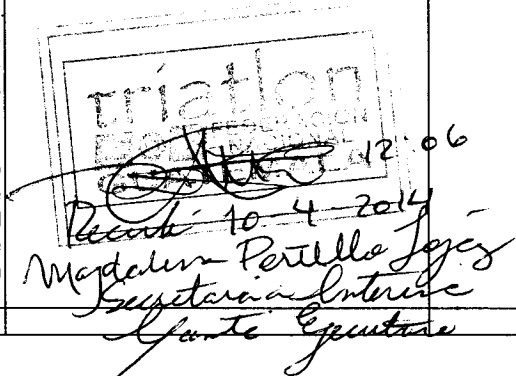 triatlon
12:06
Recibí 10-4-2014
Magdalena Portillo López
Secretaria Interina
Ejecutiva